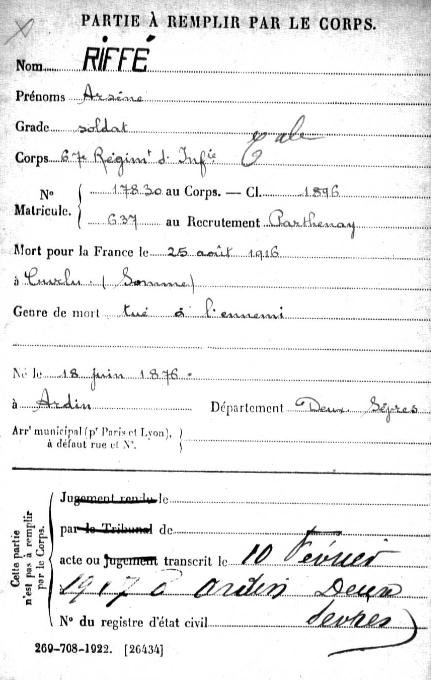 PARTIE À REMPLIR PAR LE CORPS.
Nom RIFFÉ
Prénoms Arsène
Grade soldat
Corps 67e Régimt d'Infie
No Matricule. 17830 au Corps. — Cl. 1896
637 au Recrutement Parthenay
Mort pour la France le 25 août 1916
à Curlu (Somme)
Genre de mort tué à l'ennemi
Né le 18 juin 1876
à Ardin Département Deux Sèvres
Arrt municipal (pr Paris et Lyon),
à défaut rue et No.
Cette partie
n'est pas à remplir
par le Corps.
Jugement rendu le
par le Tribunal de
acte ou jugement transcrit le 10 Février
1917 à Ardin Deux
Sevres
No du registre d'état civil
269-708-1922. [26434]